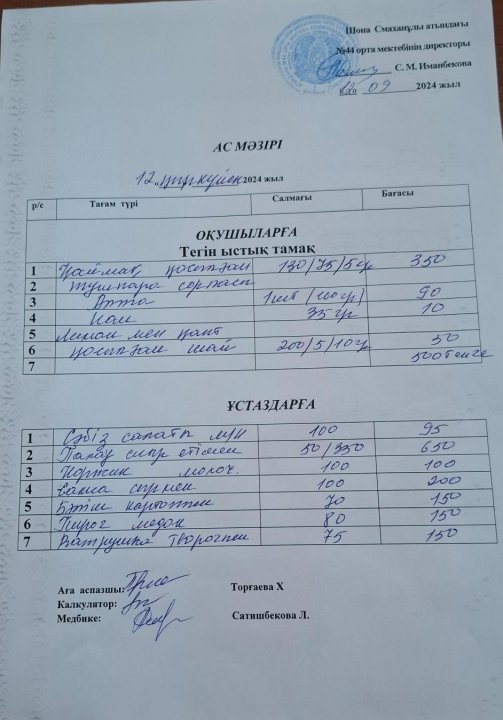 Шона Смаханұлы атындағы
№44 орта мектебінің директоры
С. М. Иманбекова
12 09 2024 жыл
АС МӘЗІРІ
12 қыркүйек 2024 жыл
р/с Тағам түрі Салмағы Бағасы
ОҚУШЫЛАРҒА
Тегін ыстық тамақ
1 Қаймақ қосылған 130/75/5гр 350
2 тушпара сорпасы
3 1шт (100гр) 90
4 Нан 35гр 10
5 Лимон мен қант
6 қосылған шай 200/5/10гр 50
7 500 тенге
ҰСТАЗДАРҒА
1 Сәбіз салаты 100 95
2 Палау сиыр етімен 50/350 650
3 Коржик молоч. 100 100
4 100 200
5 Бәтіш картоппен 70 150
6 Пирог медок 80 150
7 Ватрушка творогпен 75 150
Аға аспазшы: Торғаева Х
Калкулятор:
Медбике: Сатишбекова Л.